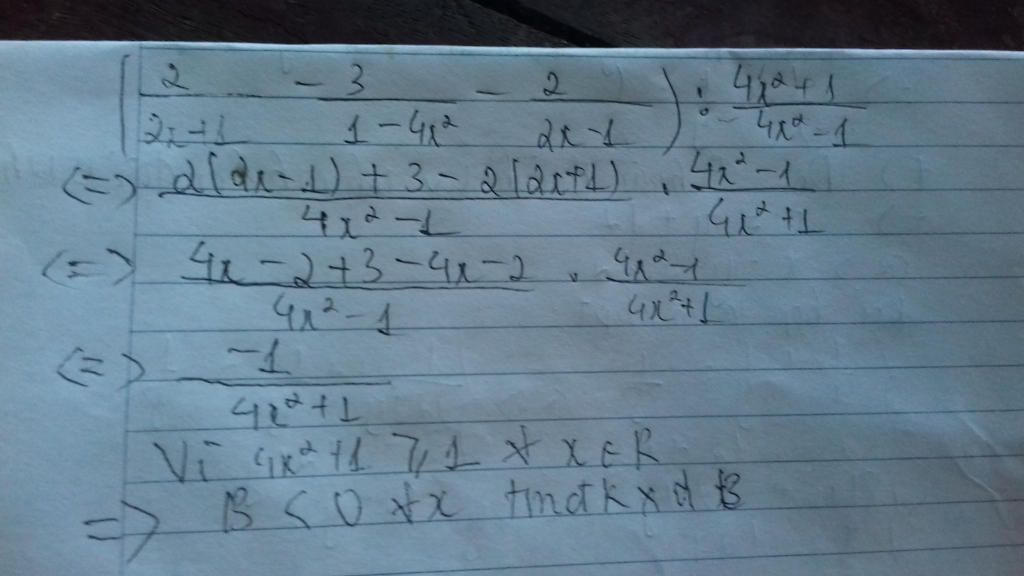 ( 2/(2x+1) - 3/(1-4x²) - 2/(2x-1) ) : (4x²+1)/(4x²-1)
<=> (2(2x-1)+3-2(2x+1))/(4x²-1) . (4x²-1)/(4x²+1)
<=> (4x-2+3-4x-2)/(4x²-1) . (4x²-1)/(4x²+1)
<=> -1/(4x²+1)
Vì 4x²+1 ⩾ 1 ∀ x ∈ R
=> B < 0 ∀x tmđk xđ B